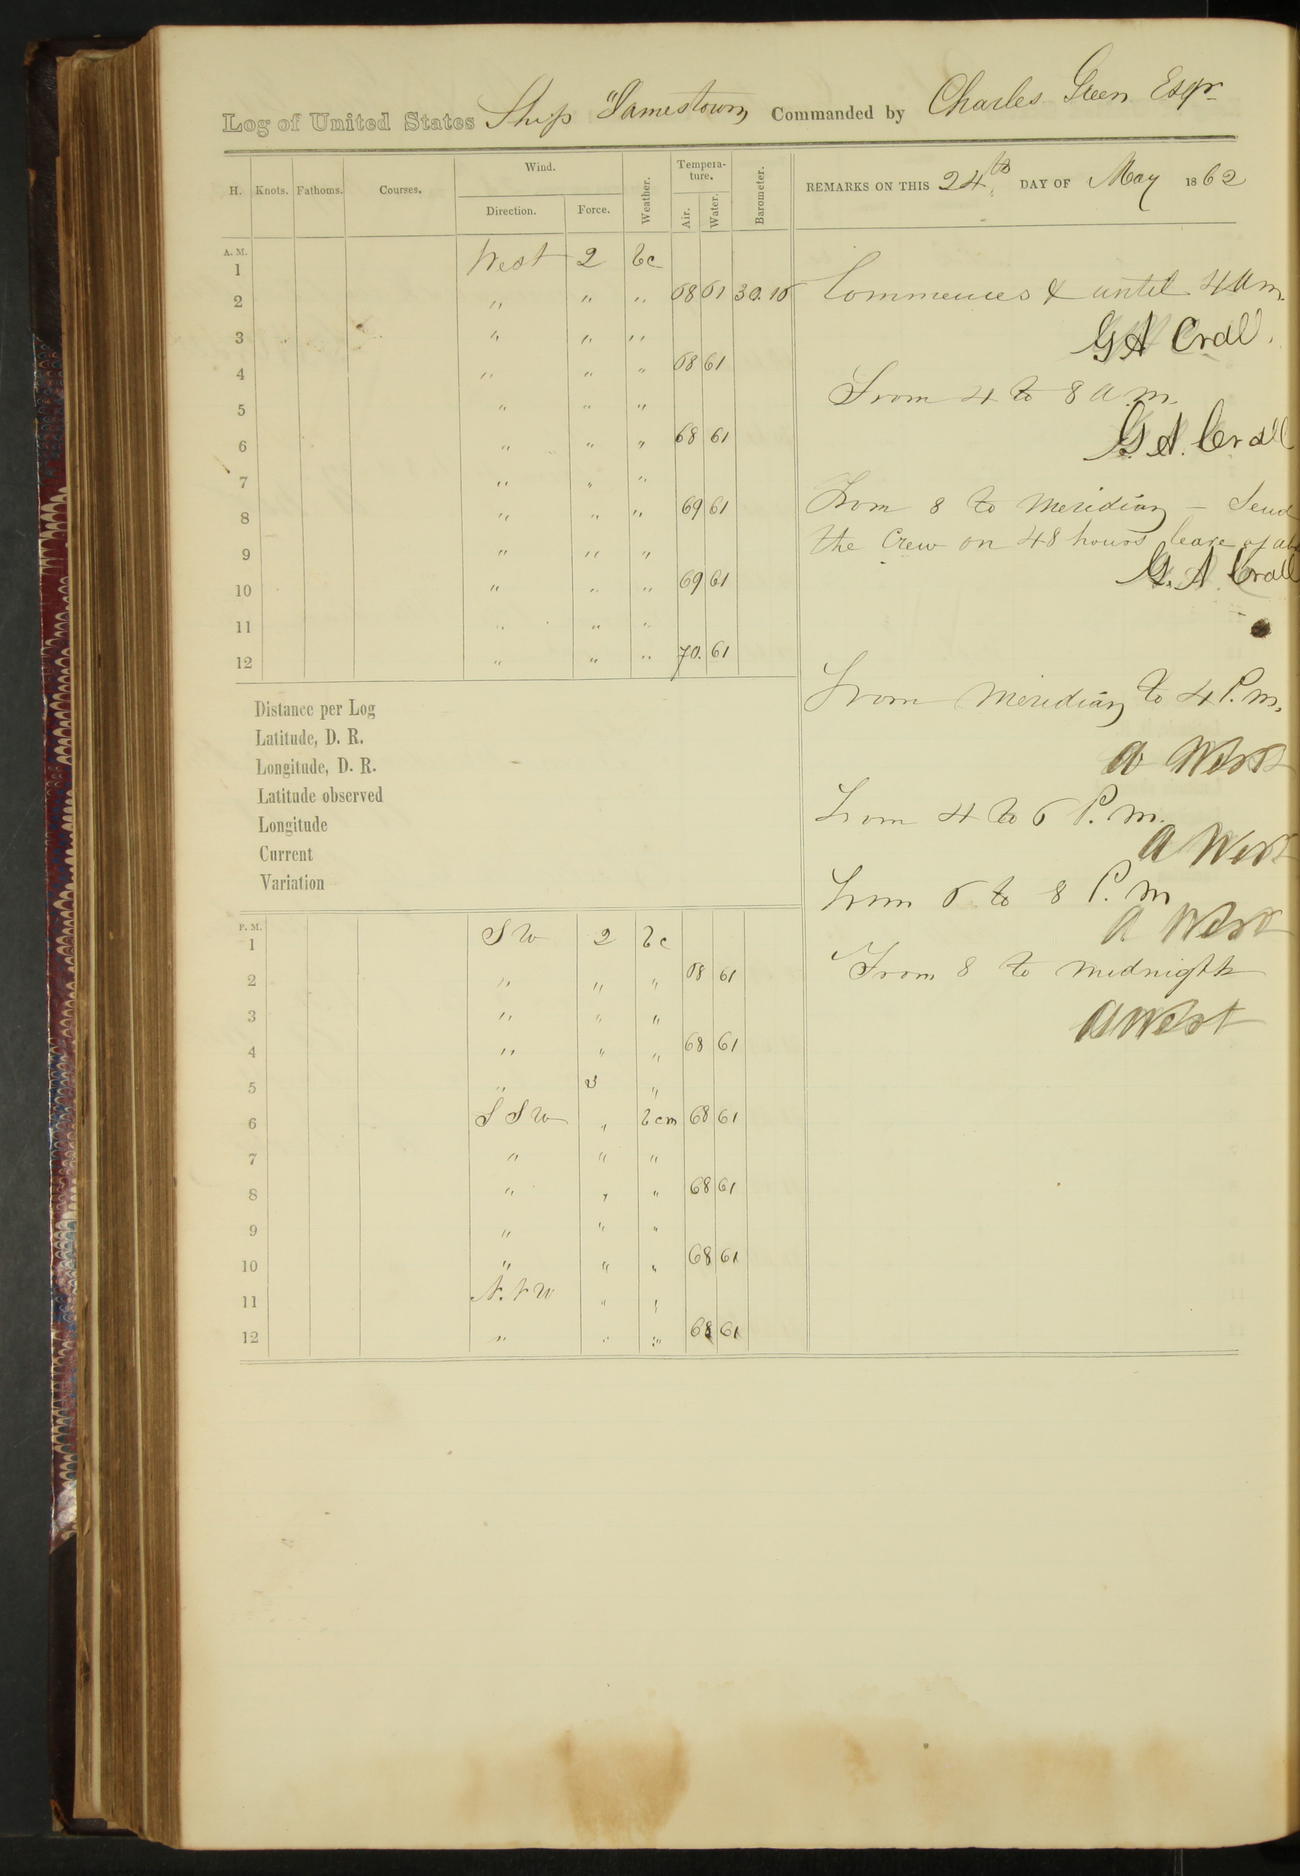 Log of United States Ship "Jamestown, Commanded by Charles Green Esqr
H. Knots. Fathoms. Courses. Wind. Direction. Force. Weather. Tempera-ture. Air. Water. Barometer.
REMARKS ON THIS 24th DAY OF May 1862
A. M.
1 West 2 bc
2 " " " 68 61 30.10
3 " " "
4 " " " 68 61
5 " " "
6 " " " 68 61
7 " " "
8 " " " 69 61
9 " " "
10 " " " 69 61
11 " " "
12 " " " 70. 61
Distance per Log
Latitude, D. R.
Longitude, D. R.
Latitude observed
Longitude
Current
Variation
P. M.
1 SW 2 bc
2 " " " 68 61
3 " " "
4 " " " 68 61
5 " 3 "
6 SSW " bcm 68 61
7 " " "
8 " " " 68 61
9 " " "
10 " " " 68 61
11 N.N W " "
12 " " " 68 61
Commences & until 4 Am.
G A Crall.
From 4 to 8 A.m.
G. A. Crall
From 8 to Meridian – Send
the Crew on 48 hours leave of
G. A. Crall
From Meridian to 4 P.m.
A West
From 4 to 6 P.m.
A West
From 6 to 8 P.m
A West
From 8 to Midnight
A West